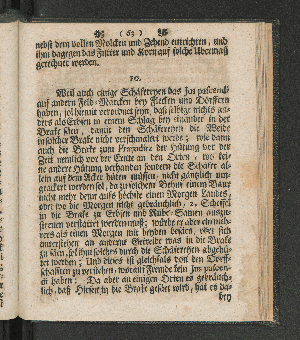 ( 63 )
nebst dem vollen Molcken und Zehend einrichten, und
ihm dagegen das Futter und Korn auf solche Ubermaß
gerechnet werden.
10.
Weil auch einige Schäfereyen das Jus pascendi
auf andern Feld-Marcken bey Flecken und Dörffern
haben, so hiermit verordnet seyn, daß selbige nichts an-
ders als Erbsen in einem Schlag bey einander in der
Brake säen, damit den Schäfereyen die Weyde
in solcher Brake nicht verschmälert werde; wie dann
auch die Brake zum Prejudice der Hütung vor der
Zeit nemlich vor der Ernte an den Orten, wo
keine andere Hütung verhanden sondern die Schäfer al-
lein auf dem Acker hüten müssen, nicht gäntzlich um-
geackert werden sol, da zu solchem Behuf einem Baur
nicht mehr denn aufs höchste einen Morgen Landes,
aber wo die Morgen nicht gebräuchlich, 2. Scheffel
in die Brake zu Erbsen und Rübe-Samen auszu-
streuen verstattet werden muß; welcher aber ein mehr-
ers als einen Morgen mit beyden besäet, oder sich
unterstehen an anderes Getreide was in die Brake
zu säen, sol ihm solches durch die Schäfereyen abgehü-
tet werden; Und dieses ist gleichfals von den Dorff-
schafften zu verstehen, worauf Fremde kein Jus pascen-
di haben; Da aber an einigen Orten es gebräuch-
lich, daß Hirsen in die Brake gesäet wird, hat es da-
bey